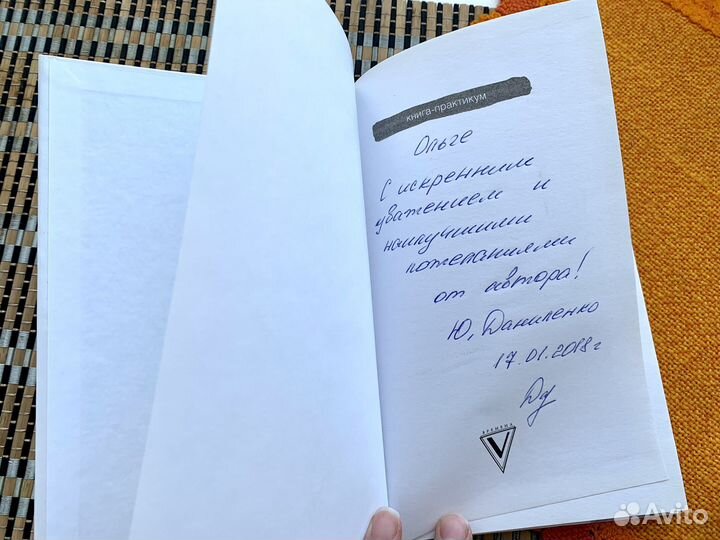 книга-практикум
Ольге
С искренним
уважением и
наилучшими
пожеланиями
от автора!
Ю. Даниленко
17.01.2018 г
ВРЕМЕНА
V
Avito